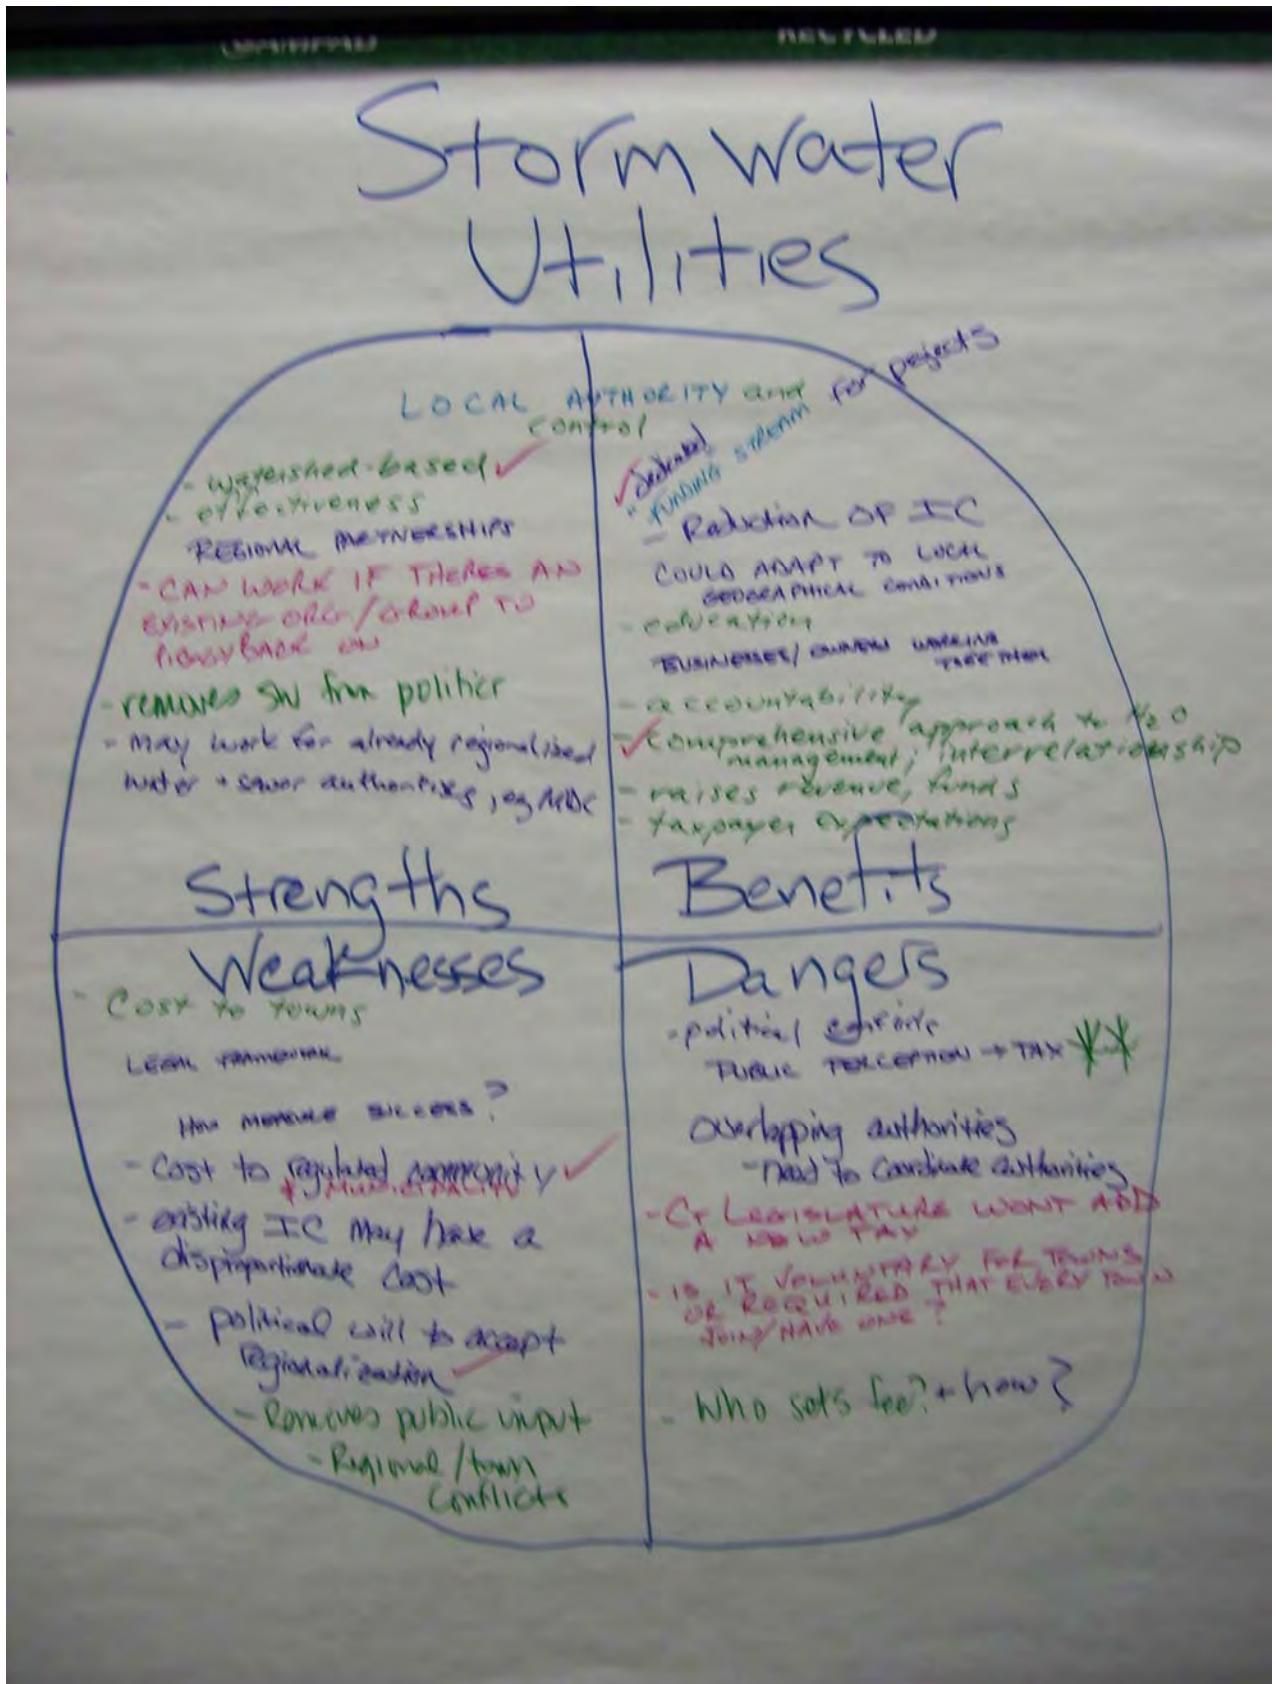 RECYCLED
Storm Water
Utilities
LOCAL AUTHORITY and
control
- watershed-based
- effectiveness
REGIONAL PARTNERSHIPS
- CAN WORK IF THERES AN
EXISTING ORG/GROUP TO
PIGGYBACK ON
- removes SW from politics
- May work for already regionalized
water + sewer authorities, eg MDC
Strengths
dedicated
FUNDING STREAM for projects
- Reduction OF IC
COULD ADAPT TO LOCAL
GEOGRAPHICAL CONDITIONS
- education
BUSINESSES/OWNERS WORKING
TOGETHER
- accountability
- comprehensive approach to H2O
management, interrelationship
- raises revenue, funds
- taxpayer expectations
Benefits
Weaknesses
- Cost to towns
LEGAL FRAMEWORK
How MEASURE SUCCESS?
- Cost to regulated community
+ MUNICIPALITY
- existing IC may have a
disproportionate cost
- political will to accept
regionalization
- Removes public input
- Regional/town
Conflicts
Dangers
- political
PUBLIC PERCEPTION → TAX
Overlapping authorities
- need to coordinate authorities
- CT LEGISLATURE WONT ADD
A NEW TAX
- IS IT VOLUNTARY FOR TOWNS
OR REQUIRED THAT EVERY TOWN
JOIN/HAVE ONE?
- Who sets fee? + how?